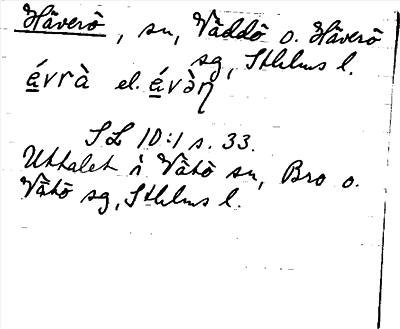 Häverö, sn, Väddö o. Häverö
sg, Sthlms l.
ǻvrà el. ǻvàn
SL 10:1 s. 33.
Uttalet i Vätö sn, Bro o.
Vätö sg, Sthlms l.